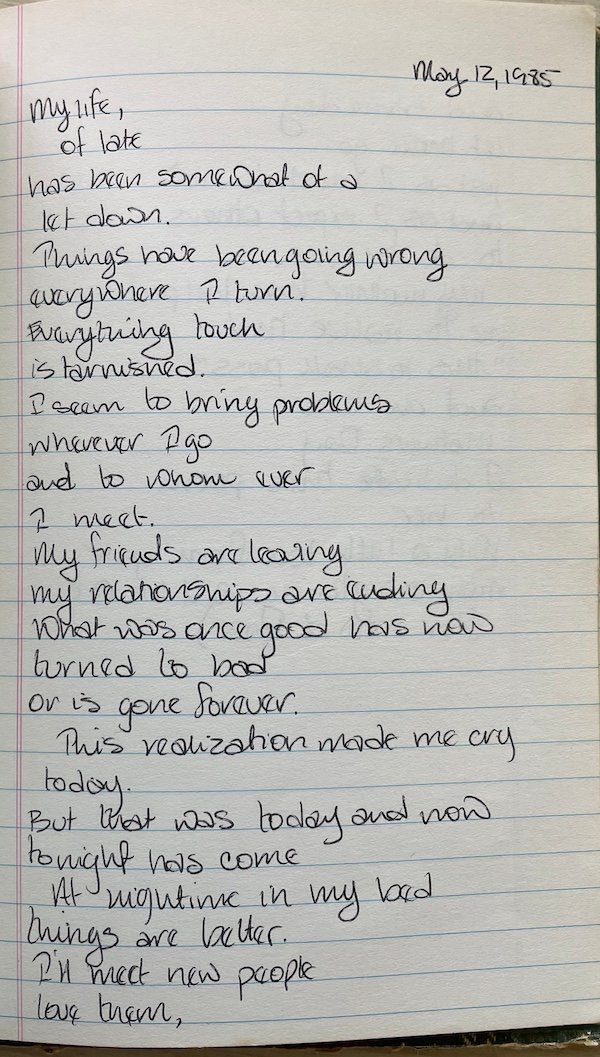 May 12, 1985
My life,
of late
has been somewhat of a
let down.
Things have been going wrong
everywhere I turn.
Everything touch
is tarnished.
I seem to bring problems
wherever I go
and to whom ever
I meet.
My friends are leaving
my relationships are ending
What was once good has now
turned to bad
or is gone forever.
This realization made me cry
today.
But that was today and now
tonight has come
At nightime in my bed
things are better.
I'll meet new people
love them,